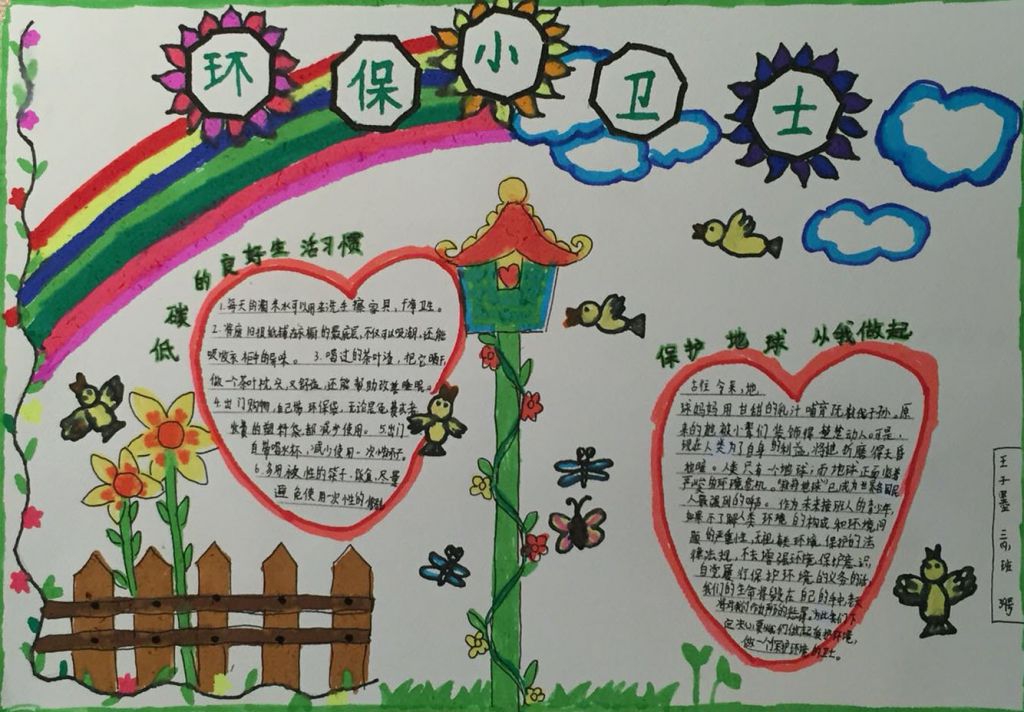 环保小卫士
低碳的良好生活习惯
1.每天的淘米水可以用来洗手擦家具,干净卫生。
2.将废旧报纸铺在衣橱的最底层,不仅可以吸潮,还能
吸收衣柜中的异味。 3.喝过的茶叶渣,把它晒干,
做一个茶叶枕头,又舒适,还能帮助改善睡眠。
4.出门购物,自己带环保袋,无论是免费或者
收费的塑料袋,都减少使用。 5.出门
自带喝水杯,减少使用一次性杯子。
6.多用
性的筷子、饭盒,尽量
避免使用一次性的
保护地球 从我做起
古往今来,地
球妈妈用甘甜的乳汁哺育了无数代子孙。原
来的她被小辈们装饰得楚楚动人。可是,
现在人类为了自身的利益,将她折磨得
人类只有一个地球;而地球正面临着
严峻的环境危机。"救救地球"已成为世界各国民
人最强烈的呼声。作为未来接班人的青少年,
如果不了解人类环境的构成和环境问
题的严重性,无视
环境保护的法
律法规,不去增强环境保护意识,
自觉履行保护环境的义务的话,
我们的生命将毁在自己的手中,
定决心要从我们做起爱护环境,
做一个保护环境的卫士。
王子墨 三 班